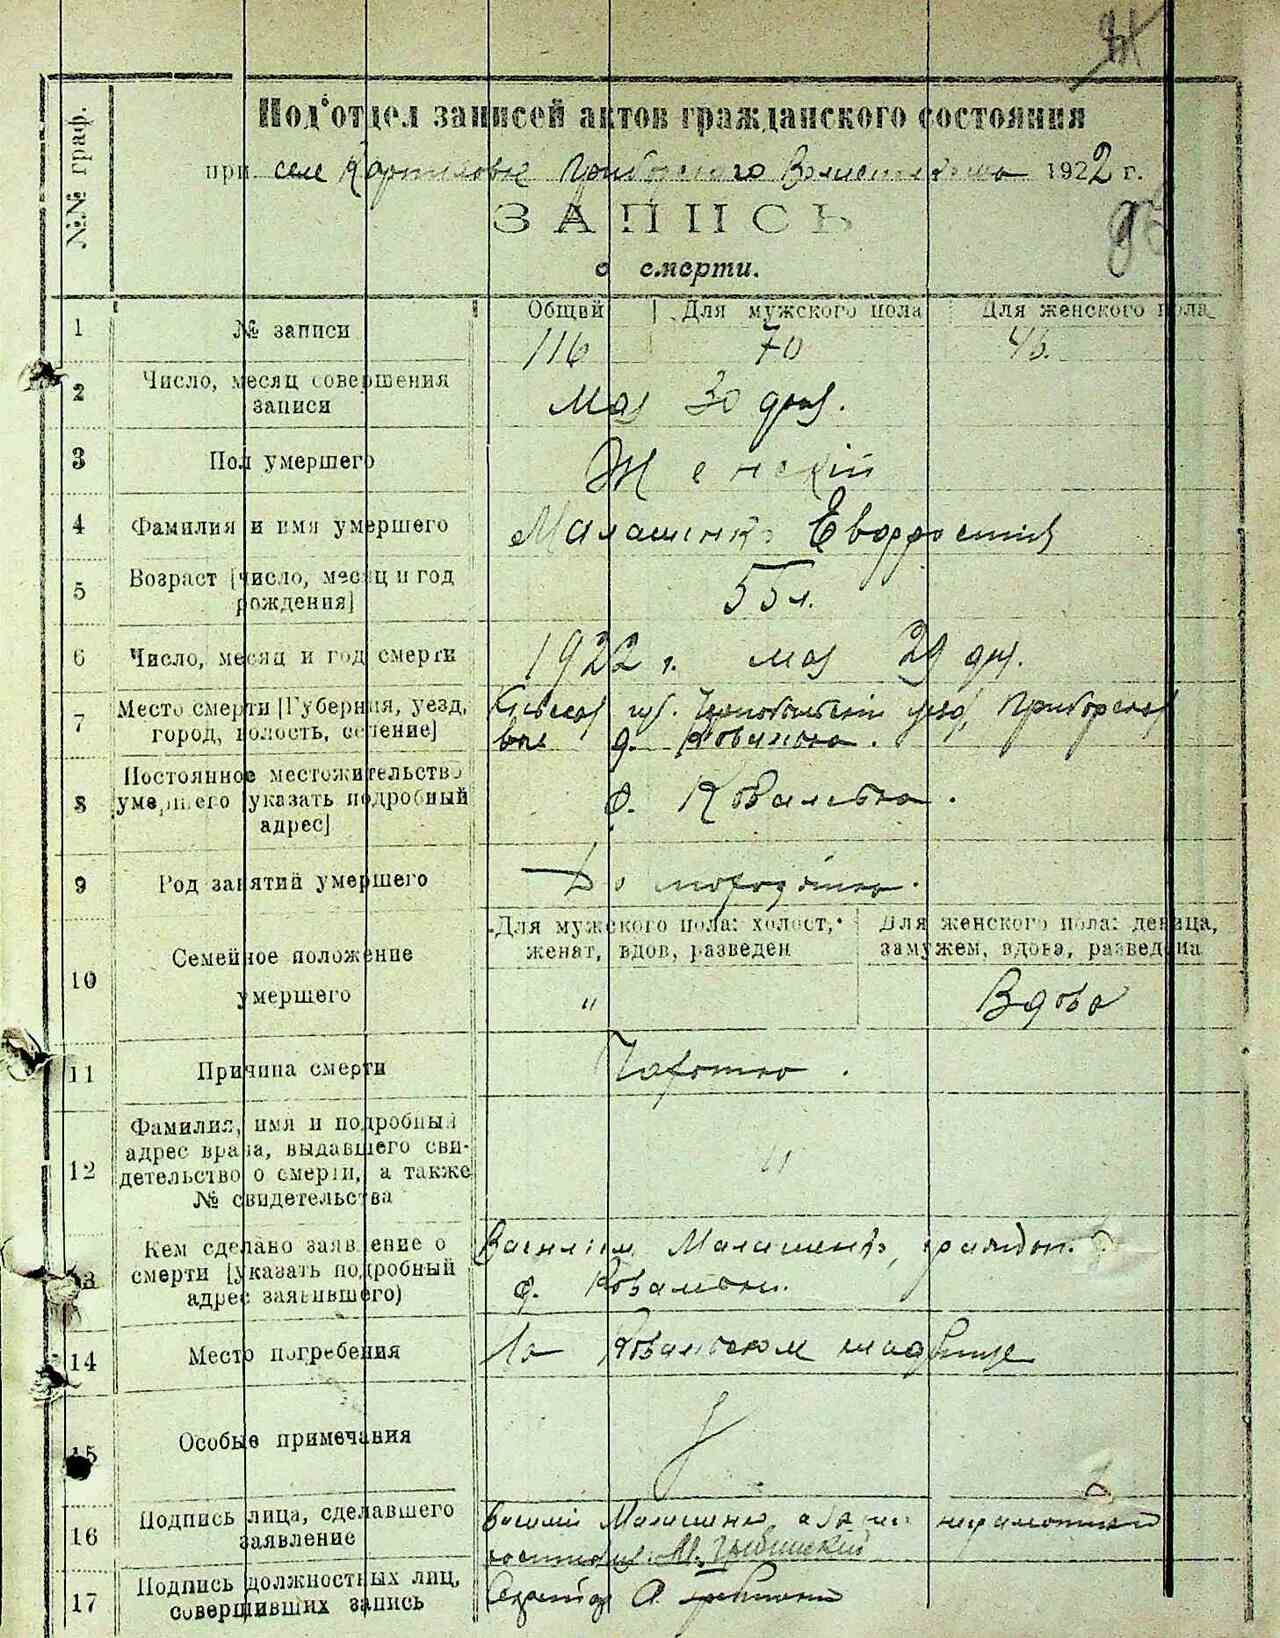 №№ граф.
Подʼотдел записей актов гражданского состояния
при селе 1922 г.
ЗАПИСЬ
о смерти.
1 № записи Общий Для мужского пола Для женского пола
116 70 46.
2 Число, месяц совершения записи
Мая 30 дня.
3 Пол умершего Женский
4 Фамилия и имя умершего Малашенко Евфросиния
5 Возраст [число, месяц и год рождения] 55 л.
6 Число, месяц и год смерти 1922 г. мая 29 дня.
7 Место смерти [Губерния, уезд, город, волость, селение]
Киевская губ. Чернобыльский уезд, Приборская
вол. д. Ковалевка.
8 Постоянное местожительство умершего [указать подробный адрес]
д. Ковалевка.
9 Род занятий умершего
10 Семейное положение умершего
Для мужского пола: холост, женат, вдов, разведен
Для женского пола: девица, замужем, вдова, разведена
" Вдова
11 Причина смерти
12 Фамилия, имя и подробный адрес врача, выдавшего свидетельство о смерти, а также № свидетельства
"
13 Кем сделано заявление о смерти [указать подробный адрес заявившего)
Василием Малашенко, граждан.
д. Ковалевки.
14 Место погребения
На кладбище
15 Особые примечания
16 Подпись лица, сделавшего заявление
Василий Малашенко, а за него неграмотного
17 Подпись должностных лиц, совершивших запись
А.